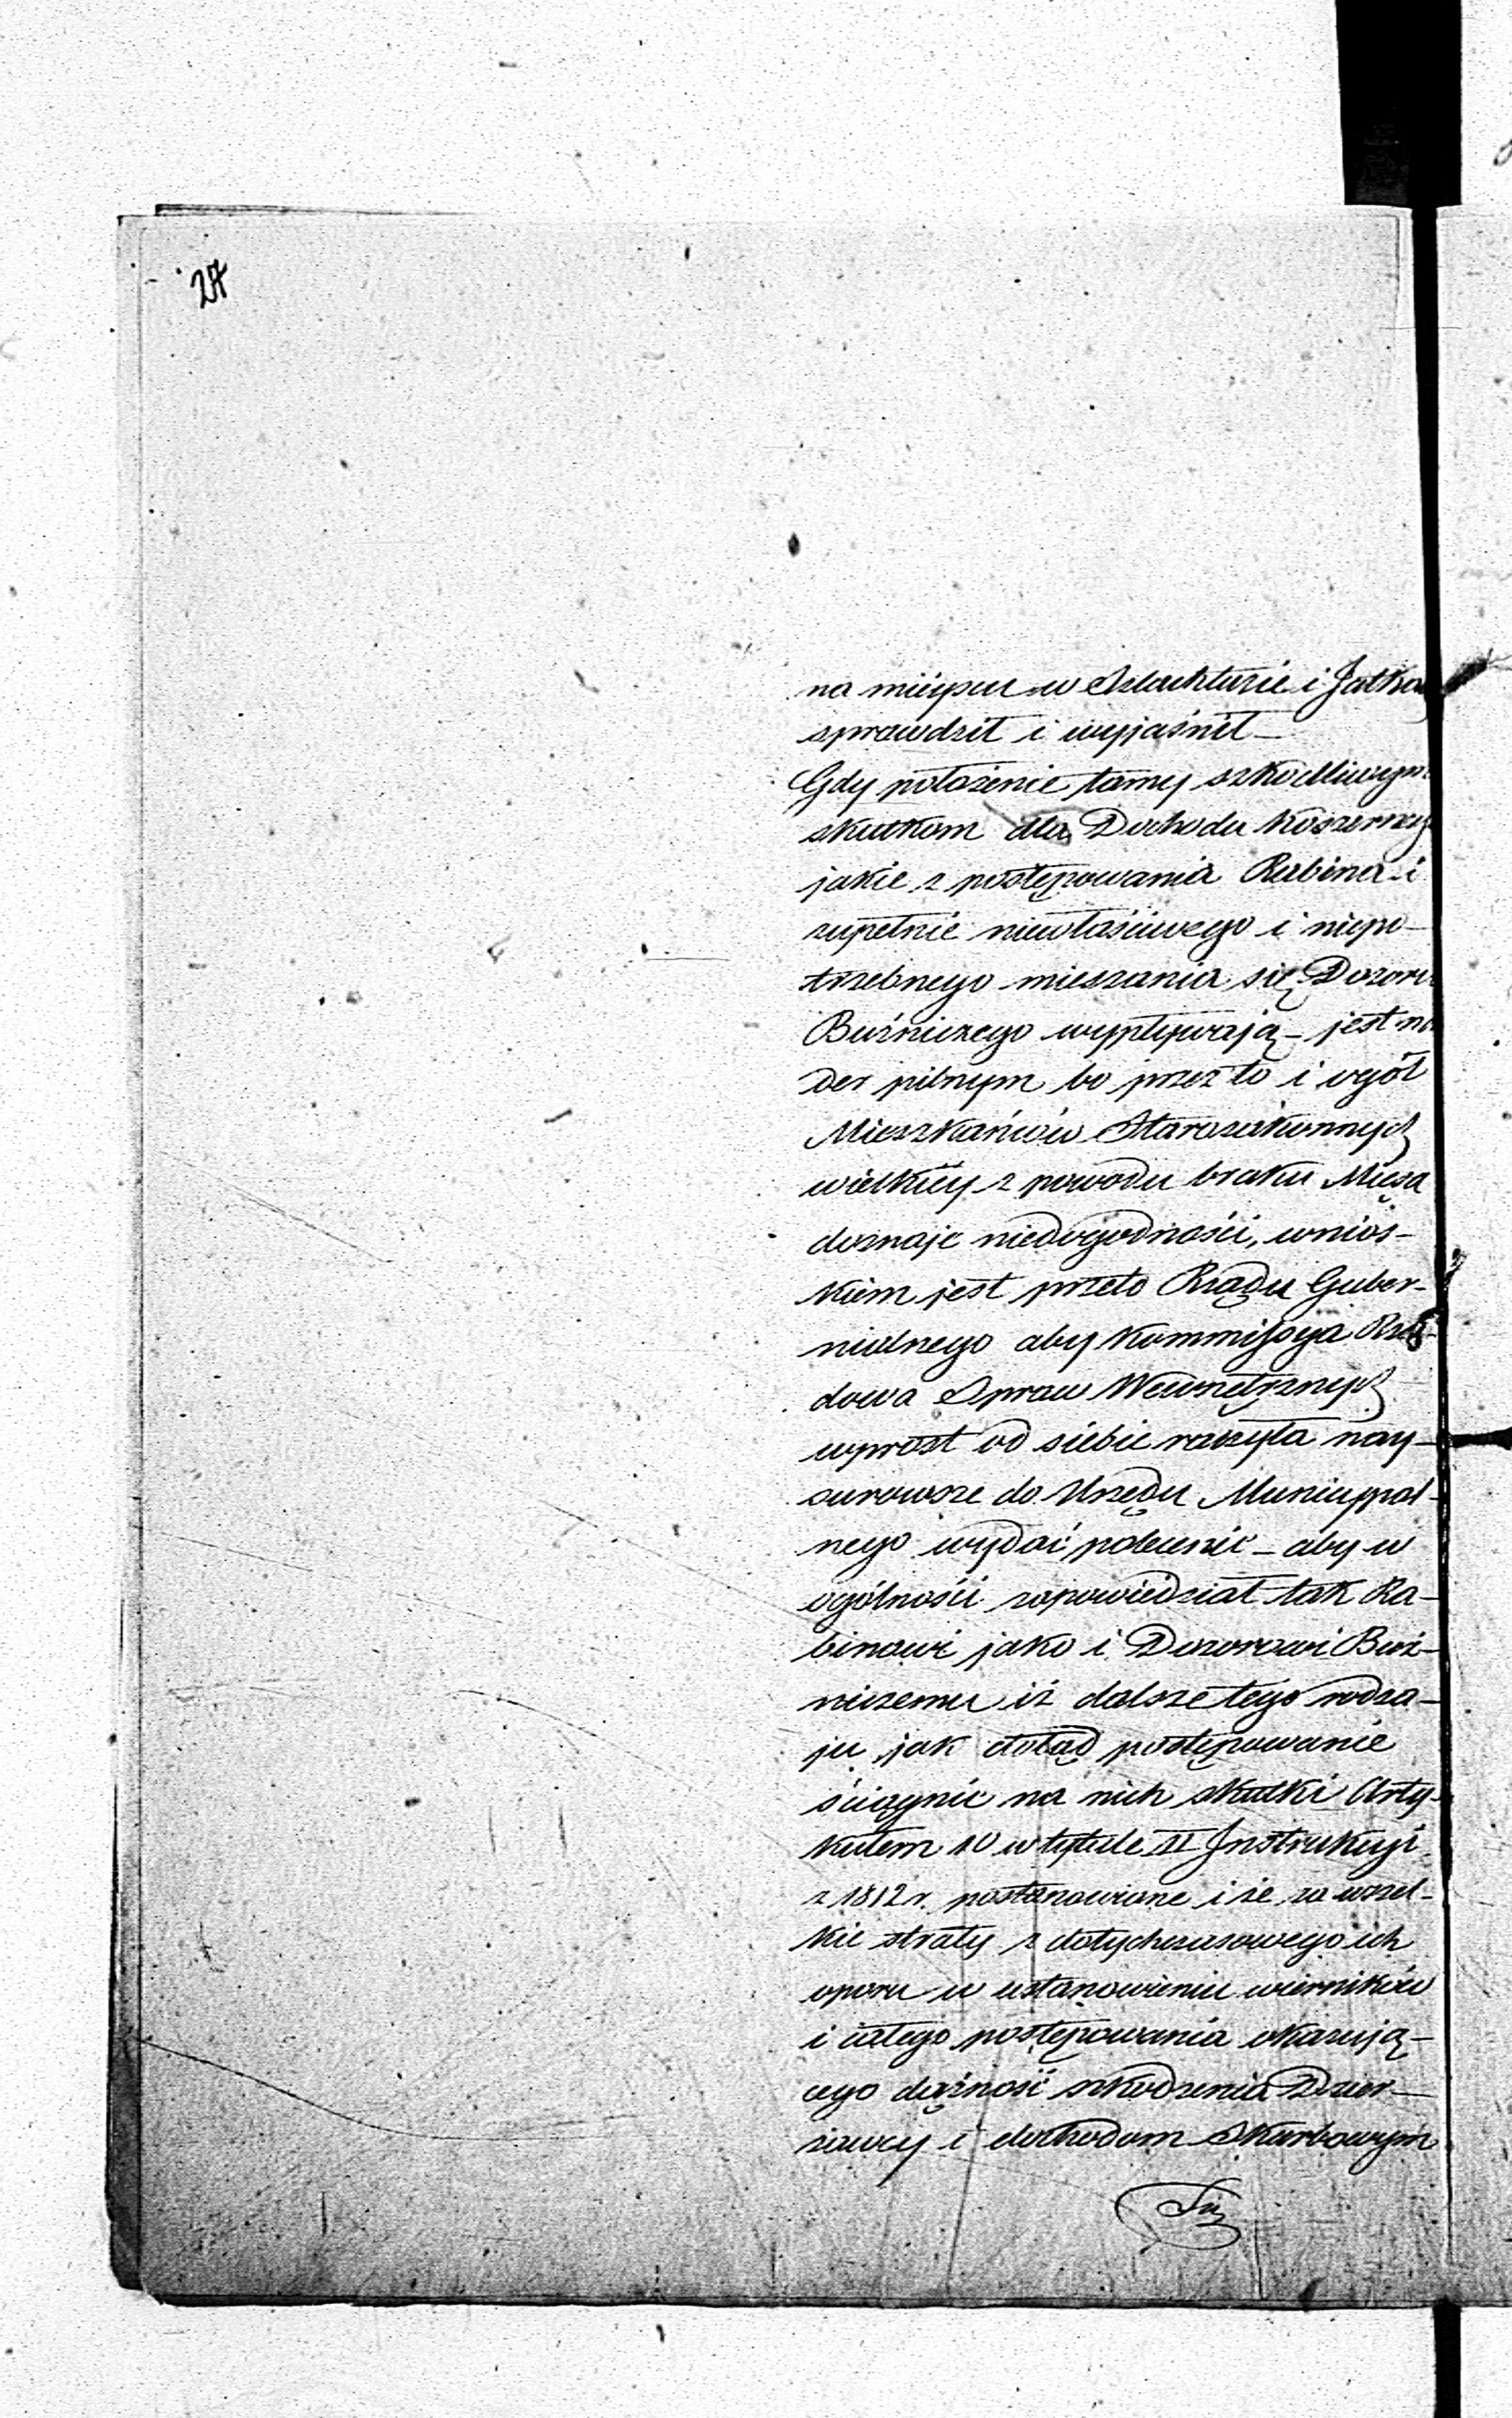 27
na mieyscu w Szlachtuzie i Jatka
sprawdził i wyjaśnił —
Gdy położenie tamy szkodliwym
skutkom dla Dochodu koszerneg
jakie z postępowania Rabina i
zupełnie niewłaściwego i niepo-
trzebnego mieszania się Dozoru
Bużniczego wypływają – jest na
der pilnym bo przez to i ogół
Mieszkańców Starozakonnych
wielkiéy z powodu braku Mięsa
doznaje niedogodności, wnios-
kiem jest przeto Rządu Guber-
nialnego aby Kommissya Rzą-
dowa Spraw Wewnętrznych
wprost od siebie raczyła nay-
surowsze do Urzędu Municypal-
nego wydać polecenie – aby w
ogólności zapowiedział tak Ra-
binowi jako i Dozorowi Buż-
niczemu iż dalsze tego rodza-
ju jak dotąd postępowanie
ściągnie na nich skutki Arty-
kułem 10 w tytule II Instrukcyi
z 1812 r. postanowione i że za wszel-
kie straty z dotychczasowego ich
oporu w ustanowieniu wierników
i całego postępowania okazują-
cego dążność szkodzenia Dzier-
żawcy i dochodom Skarbowym